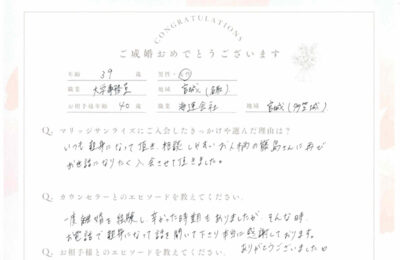 CONGRATULATIONS
ご成婚おめでとうございます
年齢 39 歳 男性・女性
職業 大学事務員 地域 宮城県(仙台)
お相手様年齢 40 歳 職業 運送会社 地域 宮城(多賀城)
Q. マリッジサンライズにご入会したきっかけや選んだ理由は?
いつも親身になって頂き、相談しやすいお人柄の篠島さんに再び
お世話になりたく入会させて頂きました。
Q. カウンセラーとのエピソードを教えてください。
一度離婚を経験し辛かった時期もありましたが、そんな時
お電話で親身になって話を聞いて下さり本当に感謝しております。
ありがとうございました
Q. お相手様とのエピソードを教えてください。